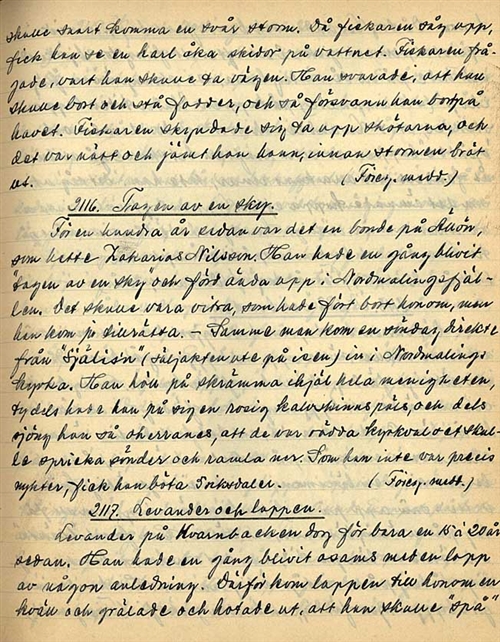 skulle snart komma en svår storm. Då fiskaren såg upp,
fick han se en karl åka skidor på vattnet. Fiskaren frå-
gade, vart han skulle ta vägen. Han svarade, att han
skulle bort och stå fadder, och så försvann han bortpå
havet. Fiskaren skyndade sig ta upp skötarna, och
det var nätt och jämt han hann, innan stormen bröt
ut. (Föreg. medd.)
2116. Tagen av en sky.
För en hundra år sedan var det en bonde på Åhön,
som hette Zakarias Nilsson. Han hade en gång blivit
"tagen av en sky" och förd ända upp i Nordmalingsfjäl-
len. Det skulle vara vitra, som hade fört bort honom, men
han kom jo tillrätta. – Samme man kom en söndag direkte
från "själis'n" (säljakten ute på isen) in i Nordmalings
kyrka. Han höll på skrämma ihjäl hela menigheten,
ty dels hade han på sig en rosig kalvskinnspäls, och dels
sjöng han så oherranes, att de var rädda kyrkvalvet skul-
le spricka sönder och ramla ner. Som han inte var precis
nykter, fick han böta riksdaler. (Föreg. medd.)
2117. Levander och lappen.
Levander på Kvarnbacken dog för bara en 15 à 20 år
sedan. Han hade en gång blivit osams med en lapp
av någon anledning. Därför kom lappen till honom en
kväll och grälade och hotade ut, att han skulle "spå"